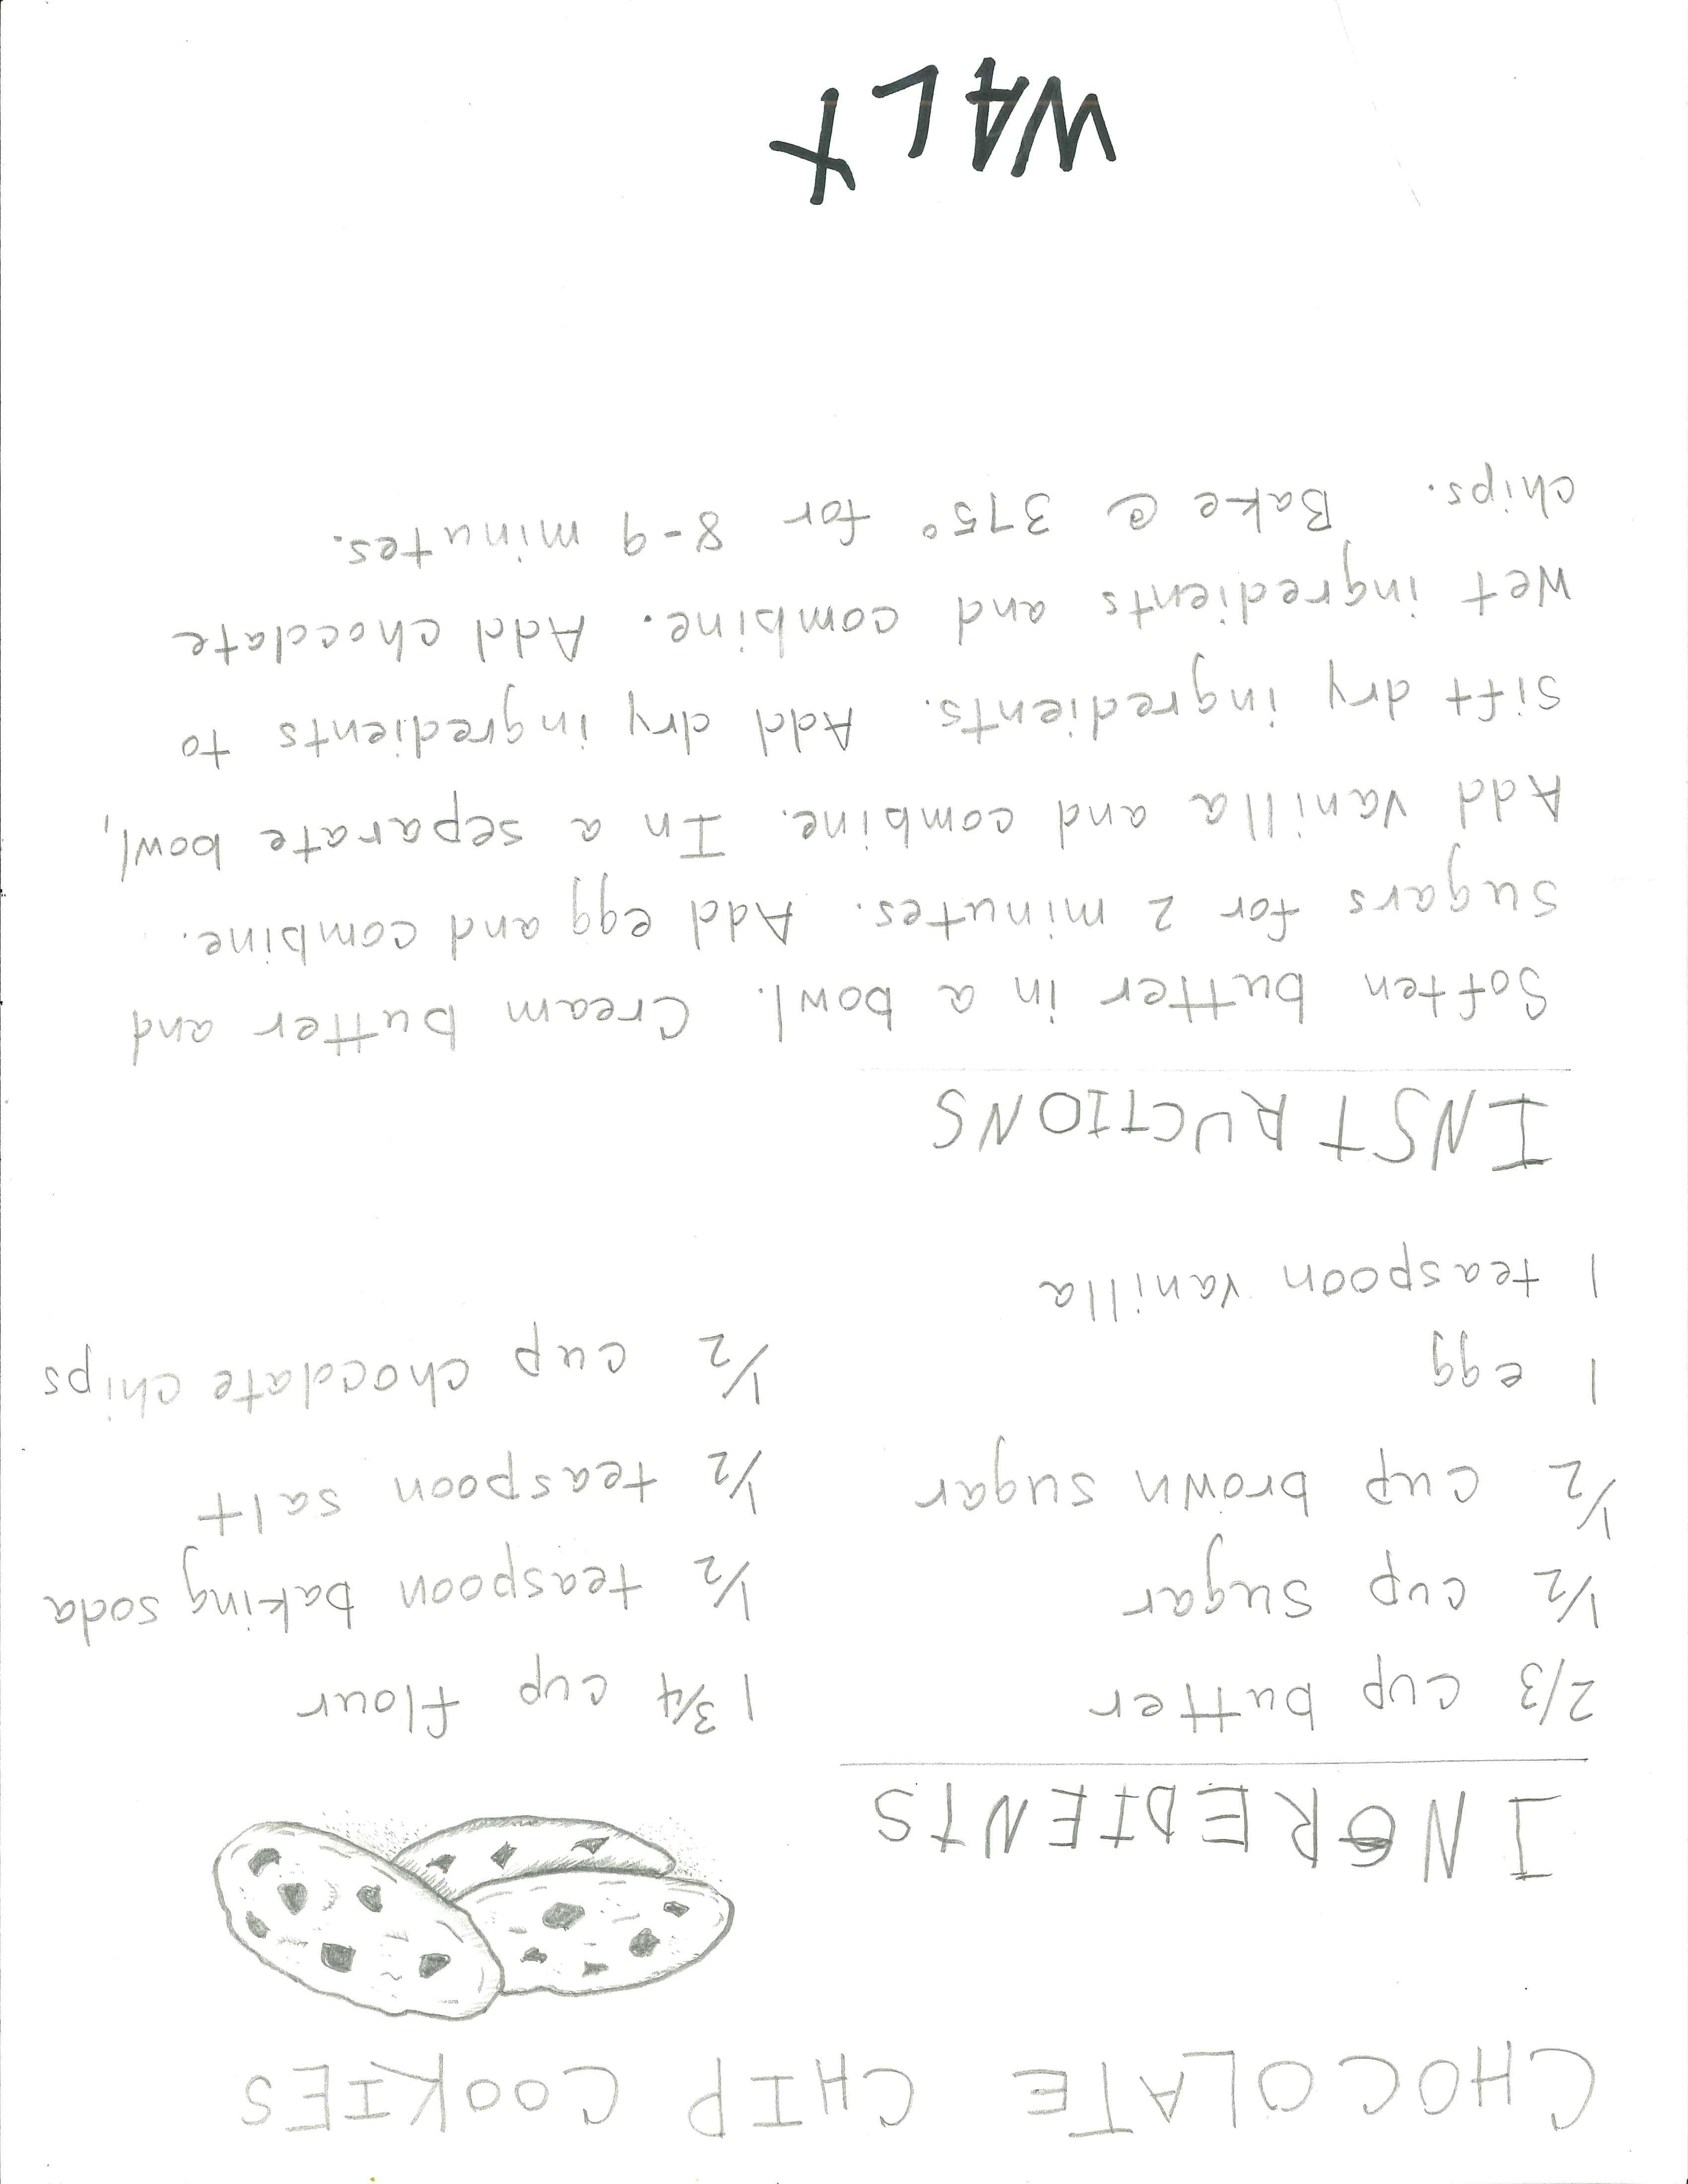 CHOCOLATE CHIP COOKIES
INGREDIENTS
2/3 cup butter
1/2 cup sugar
1/2 cup brown sugar
1 egg
1 teaspoon vanilla
1 3/4 cup flour
1/2 teaspoon baking soda
1/2 teaspoon salt
1/2 cup chocolate chips
INSTRUCTIONS
Soften butter in a bowl. Cream butter and
sugars for 2 minutes. Add egg and combine.
Add vanilla and combine. In a separate bowl,
sift dry ingredients. Add dry ingredients to
wet ingredients and combine. Add chocolate
chips. Bake @ 375° for 8-9 minutes.
WALT